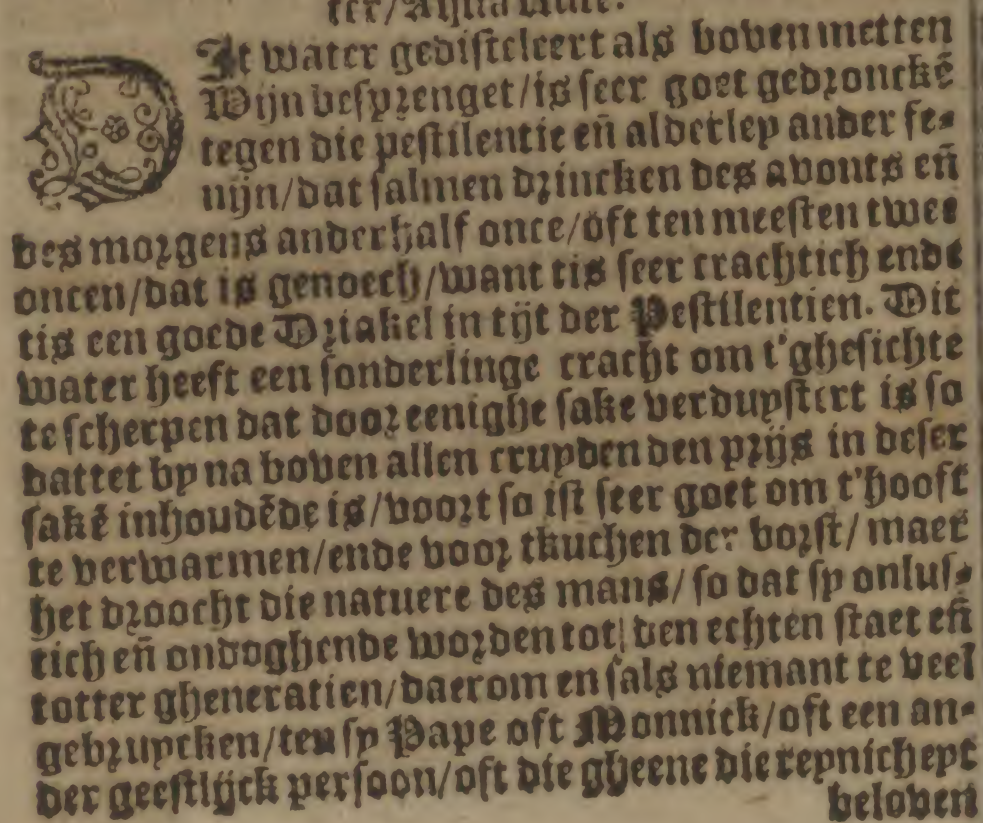 ter/Aqua
DIt water gedisteleert als boven metten
Wijn besprenget/is seer goet gedronckē
tegen die pestilentie eñ alderley ander fe-
nijn/dat salmen drincken des avonts eñ
des morgens anderhalf once/oft ten meesten twee
oncen/dat is genoech/want tis seer crachtich ende
tis een goede Driakel in tijt der Pestilentien. Dit
water heeft een sonderlinge cracht om t'ghesichte
te scherpen dat door eenighe sake verduystert is so
dattet by na boven allen cruyden den prijs in deser
sakē inhoudēde is/voort so ist seer goet om t'hooft
te verwarmen/ende voor tkuchen der borst/maer
het droocht die natuere des mans/so dat sy onlus-
tich eñ ondoghende worden tot den echten staet eñ
totter gheneratien/daerom en sals niemant te veel
gebruycken/ten sy Pape oft Monnick/oft een an-
der geestlijck persoon/oft die gheene die reynicheyt
beloven